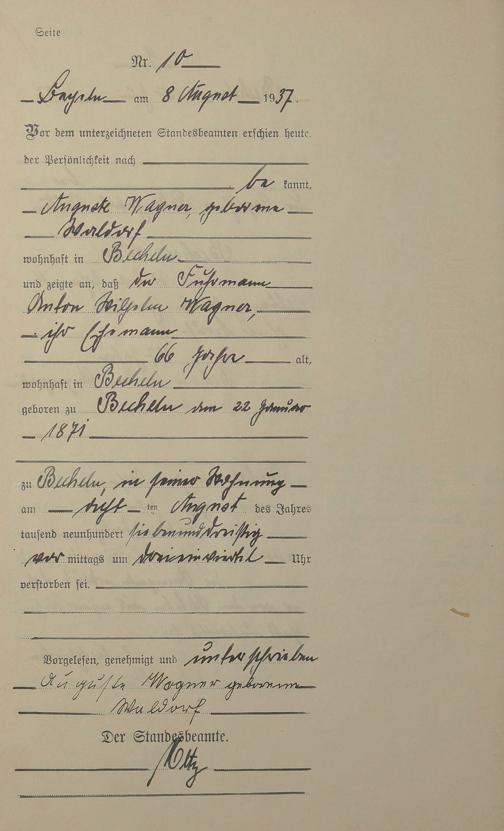 Seite
Nr. 10
Becheln am 8 August 1937.
Vor dem unterzeichneten Standesbeamten erschien heute,
der Persönlichkeit nach
be kannt,
Auguste Wagner, geborene
Waldorf
wohnhaft in Becheln
und zeigte an, daß der Fuhrmann
Anton Wilhelm Wagner,
ihr Ehemann
66 Jahre alt,
wohnhaft in Becheln
geboren zu Becheln dem 22 Januar
1871
zu Becheln, in seiner Wohnung
am acht ten August des Jahres
tausend neunhundert siebenunddreißig
vor mittags um dreieinviertel Uhr
verstorben sei.
Vorgelesen, genehmigt und unterschrieben
Auguste Wagner geborene
Waldorf
Der Standesbeamte.